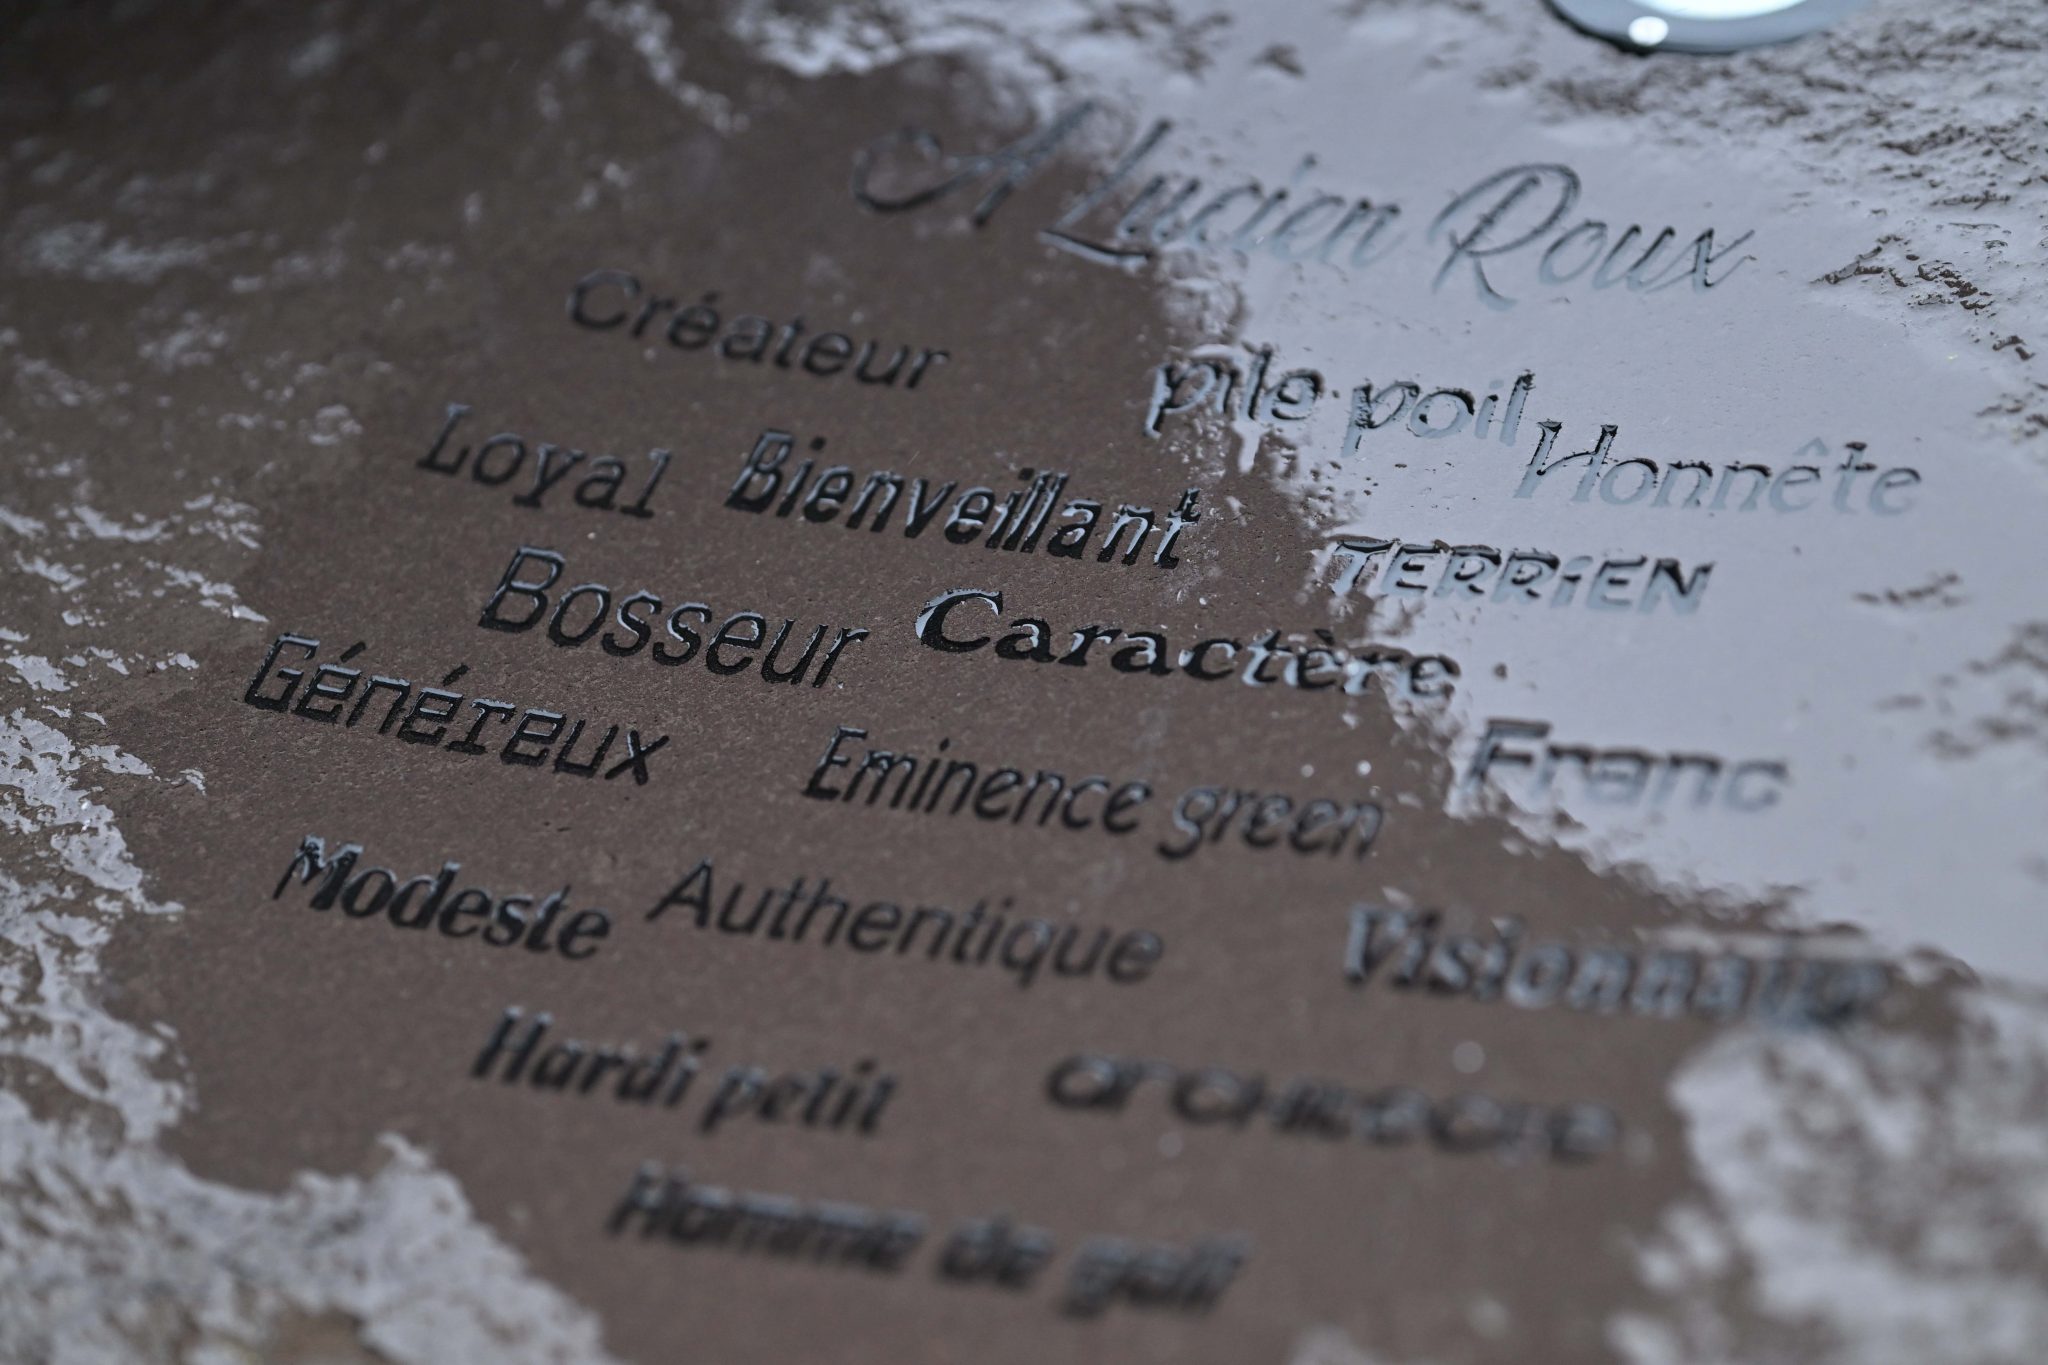 A Lucien Roux
Créateur pile poil
Loyal Bienveillant Honnête
Bosseur Caractère TERRiEN
Généreux Eminence green Franc
Modeste Authentique Visionnaire
Hardi petit
Homme de golf